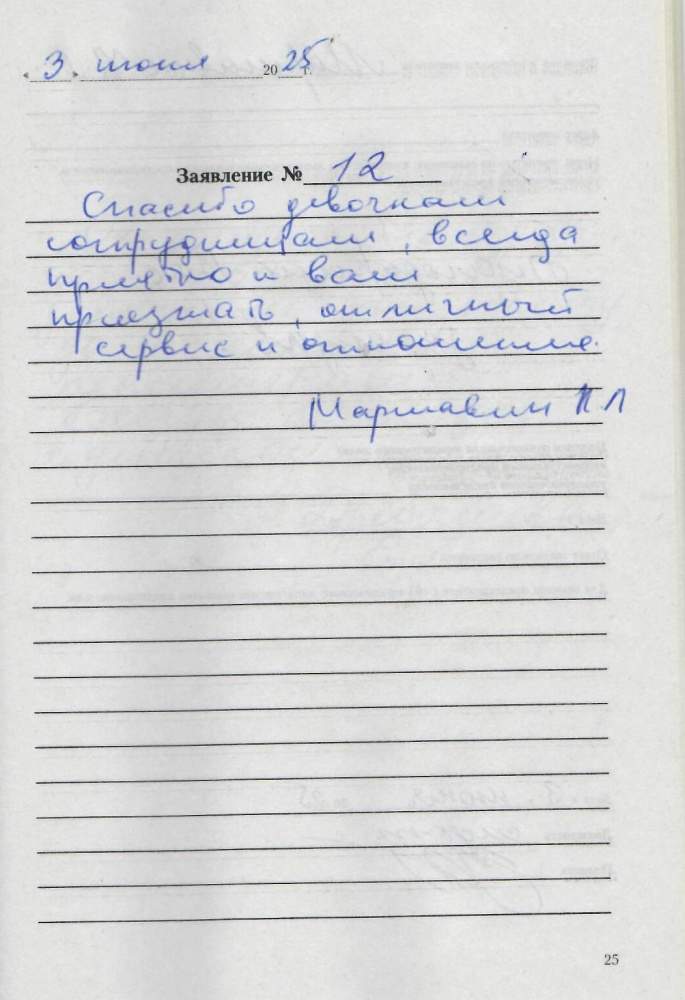 « 3 » июня 2025 г.
Заявление № 12
Спасибо девочкам
сотрудникам, всегда
приятно к вам
приезжать, отличный
сервис и отношение.
П Л
25